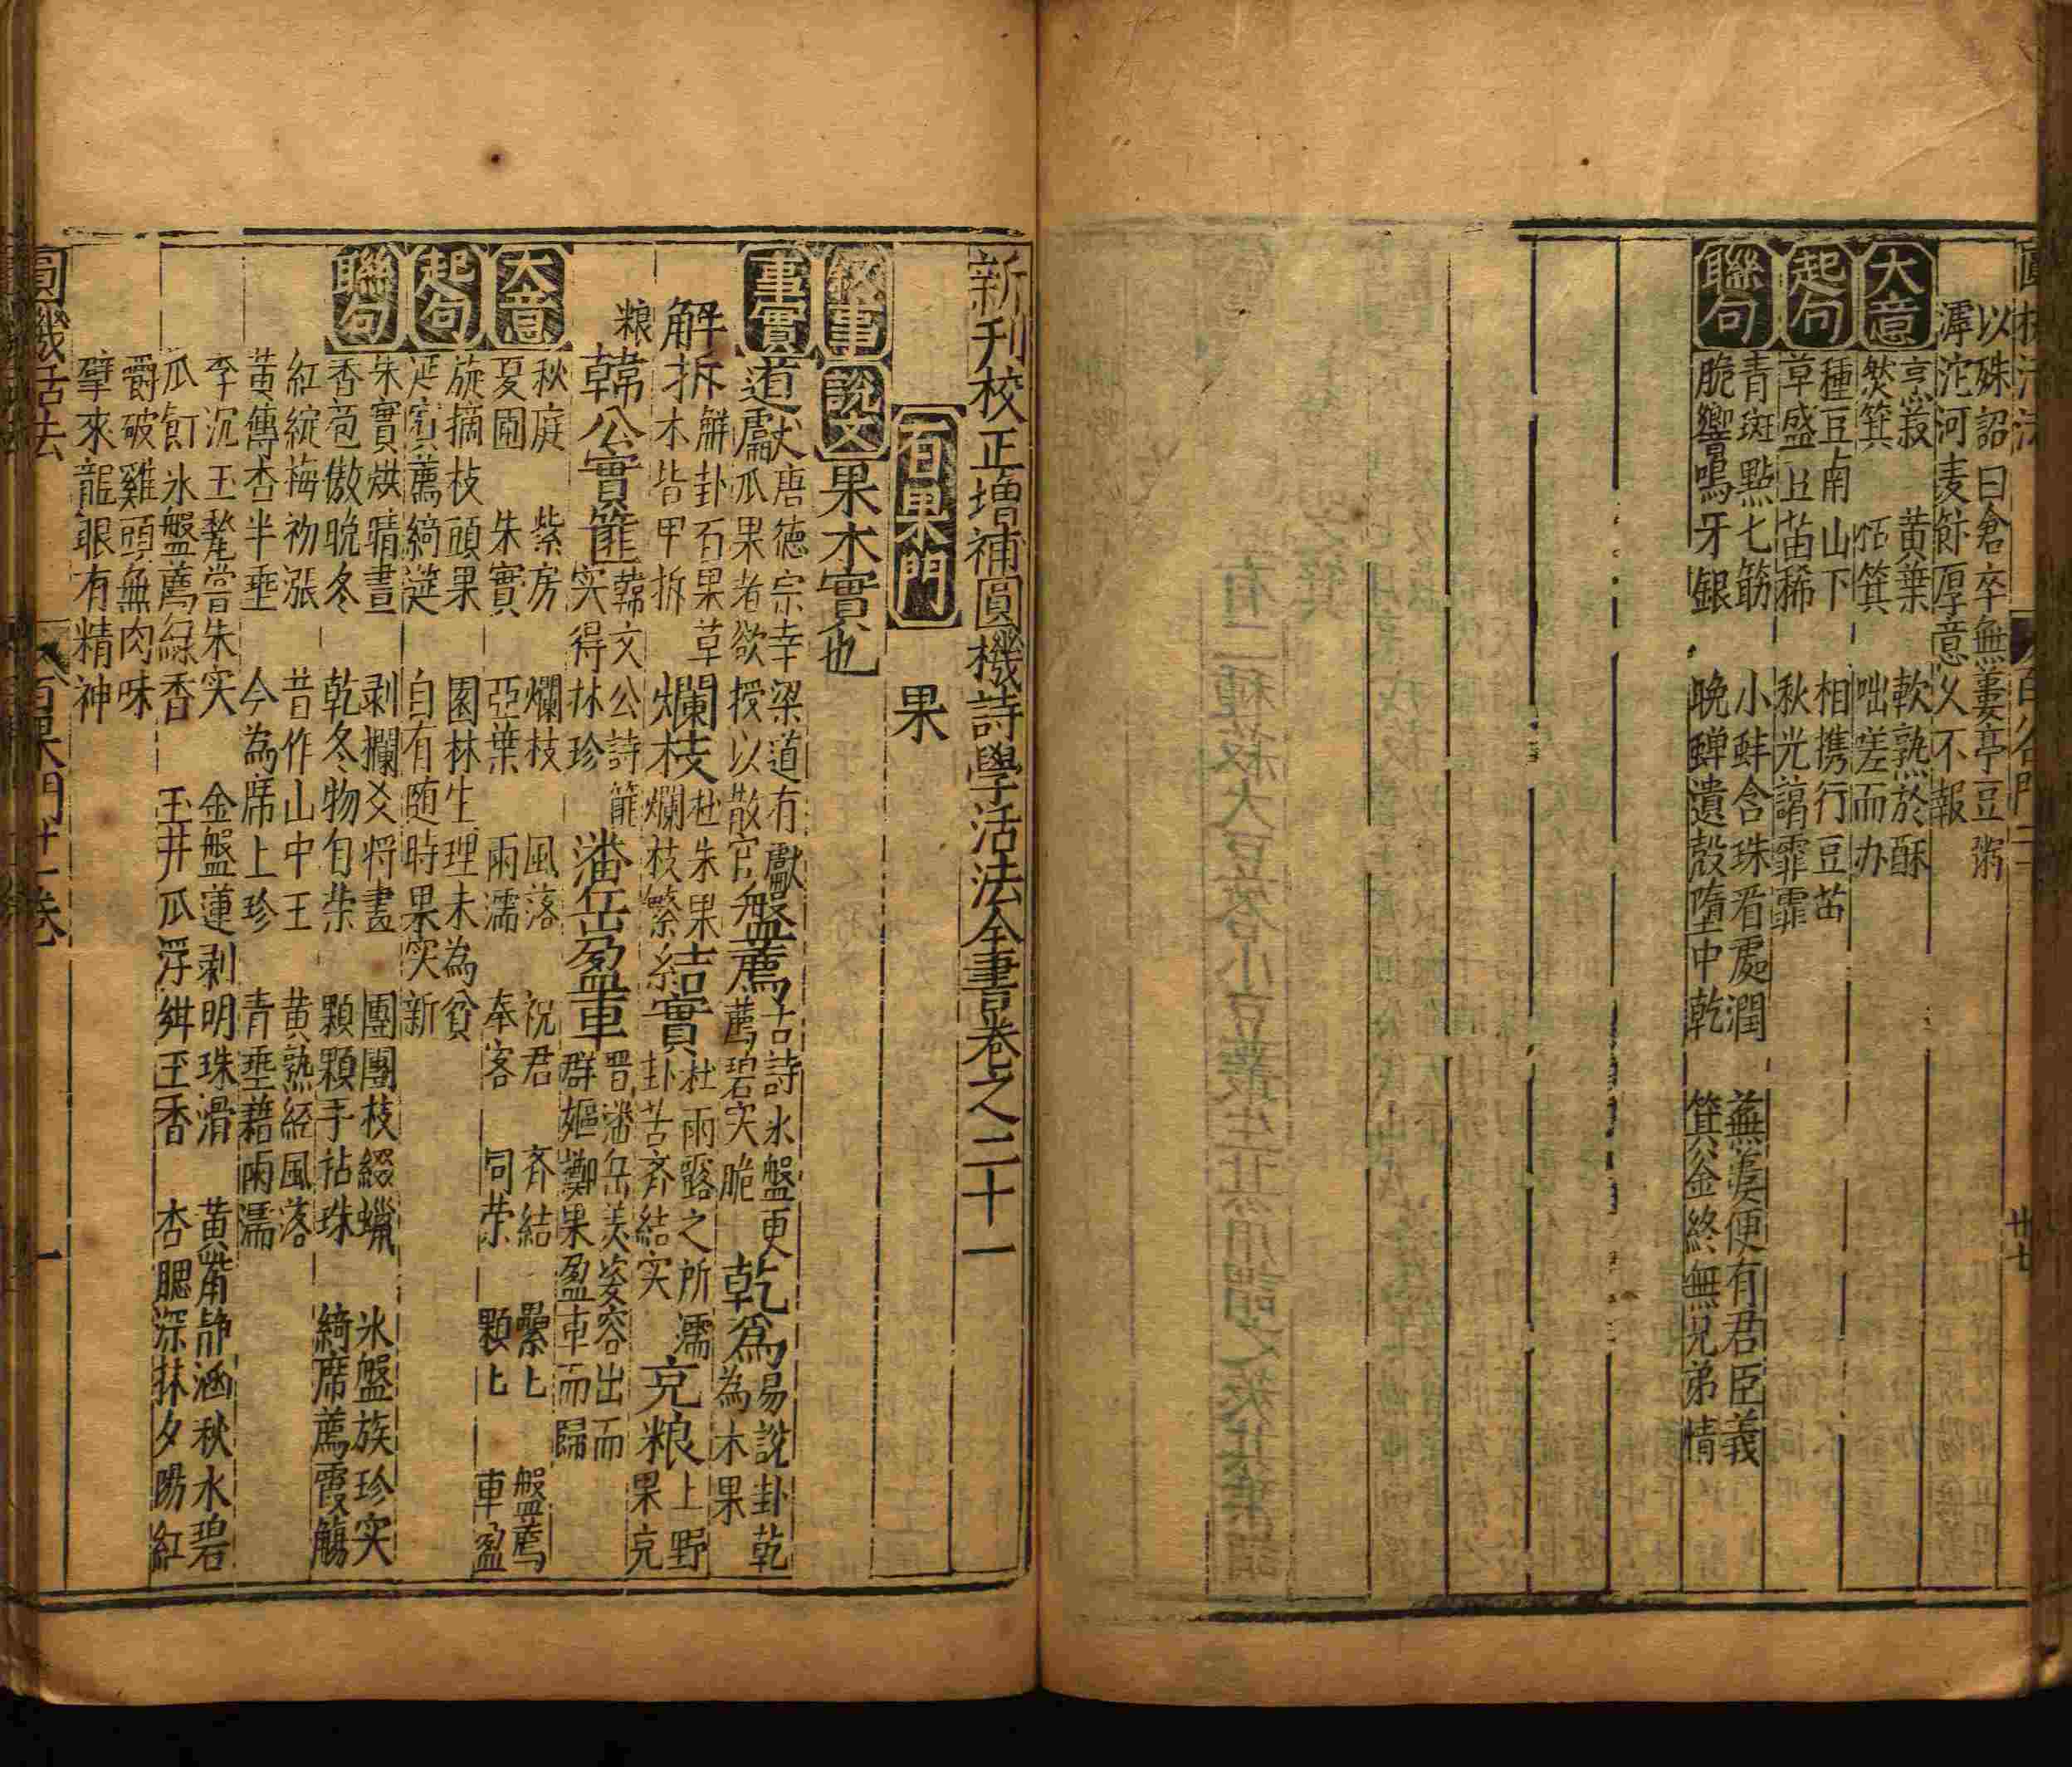 以殊詔曰倉卒無蔞亭豆粥
滹沱河麦飰厚意乆不報
大意
烹菽　黄葉　軟熟於酥
焚箕　　箕　咄嗟而办
起句
種豆南山下　相携行豆苗
草盛豆苗稀　秋光謁霏霏
聯句
青斑點七筯　小蚌含珠看處潤　蕪蔞便有君臣義
脆響鳴牙銀　晚蟬遺殼墮中乾　箕金終無兄弟情
新刋校正增補圓機詩學活法全書卷之二十一
百果門　果
叙事　說文　果木實也
事實
道獻　唐德宗幸梁道有獻瓜果者欲授以散官
盤薦　古詩氷盤更薦碧实脆
乾爲　易說卦乾為木果
解拆　解卦石果草木皆甲拆
爛枝　杜朱果爛枝繁
結實　杜雨露之所濡卦苦齐結实
充粮　上野果充粮
韓公實篚　韓文公詩篚实得林珍
潘岳盈車　晋潘岳美姿容出而群嫗擲果盈車而歸
大意
秋庭　紫房　爛枝　風落　祝君　齐結　纍匕　盤薦
夏圃　朱實　亞葉　雨濡　奉客　同荣　顆匕　車盈
起句
旋摘枝頭果　園林生理未為貧
延賓薦綺筵　自有随時果实新
聯句
朱實烘晴晝　剥攔爻将盡　團團枝綴蠟　氷盤族珍实
香苞傲晚冬　乾冬物自荣　顆顆手拈珠　綺席薦霞觴
紅綻梅初漲　昔作山中王　黄熟経風落
黄傳杏半垂　今為席上珍　青垂藉雨濡
李沉玉甃嘗朱实　金盤蓮剥明珠滑　黄觜静涵秋水碧
瓜飣氷盤薦緑香　玉井瓜浮紺玉香　杏腮深抹夕陽紅
嚼破雞頭無肉味
擘來龍眼有精神
圓機活法　百果門廿一卷　一